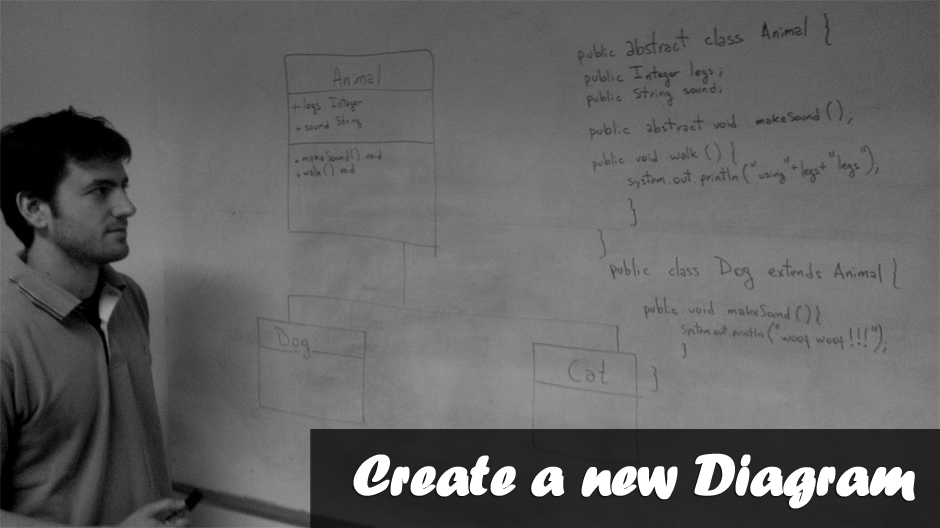 Animal
+ legs Integer
+ sound String
+ makeSound() void
+ walk() void
Dog
Cat
public abstract class Animal {
public Integer legs;
public String sound;
public abstract void makeSound(),
public void walk() {
system.out.println("using"+legs+"legs"),
}
}
public class Dog extends Animal {
public void makeSound(){
system.out.println("woof woof!!!"),
}
}
Create a new Diagram